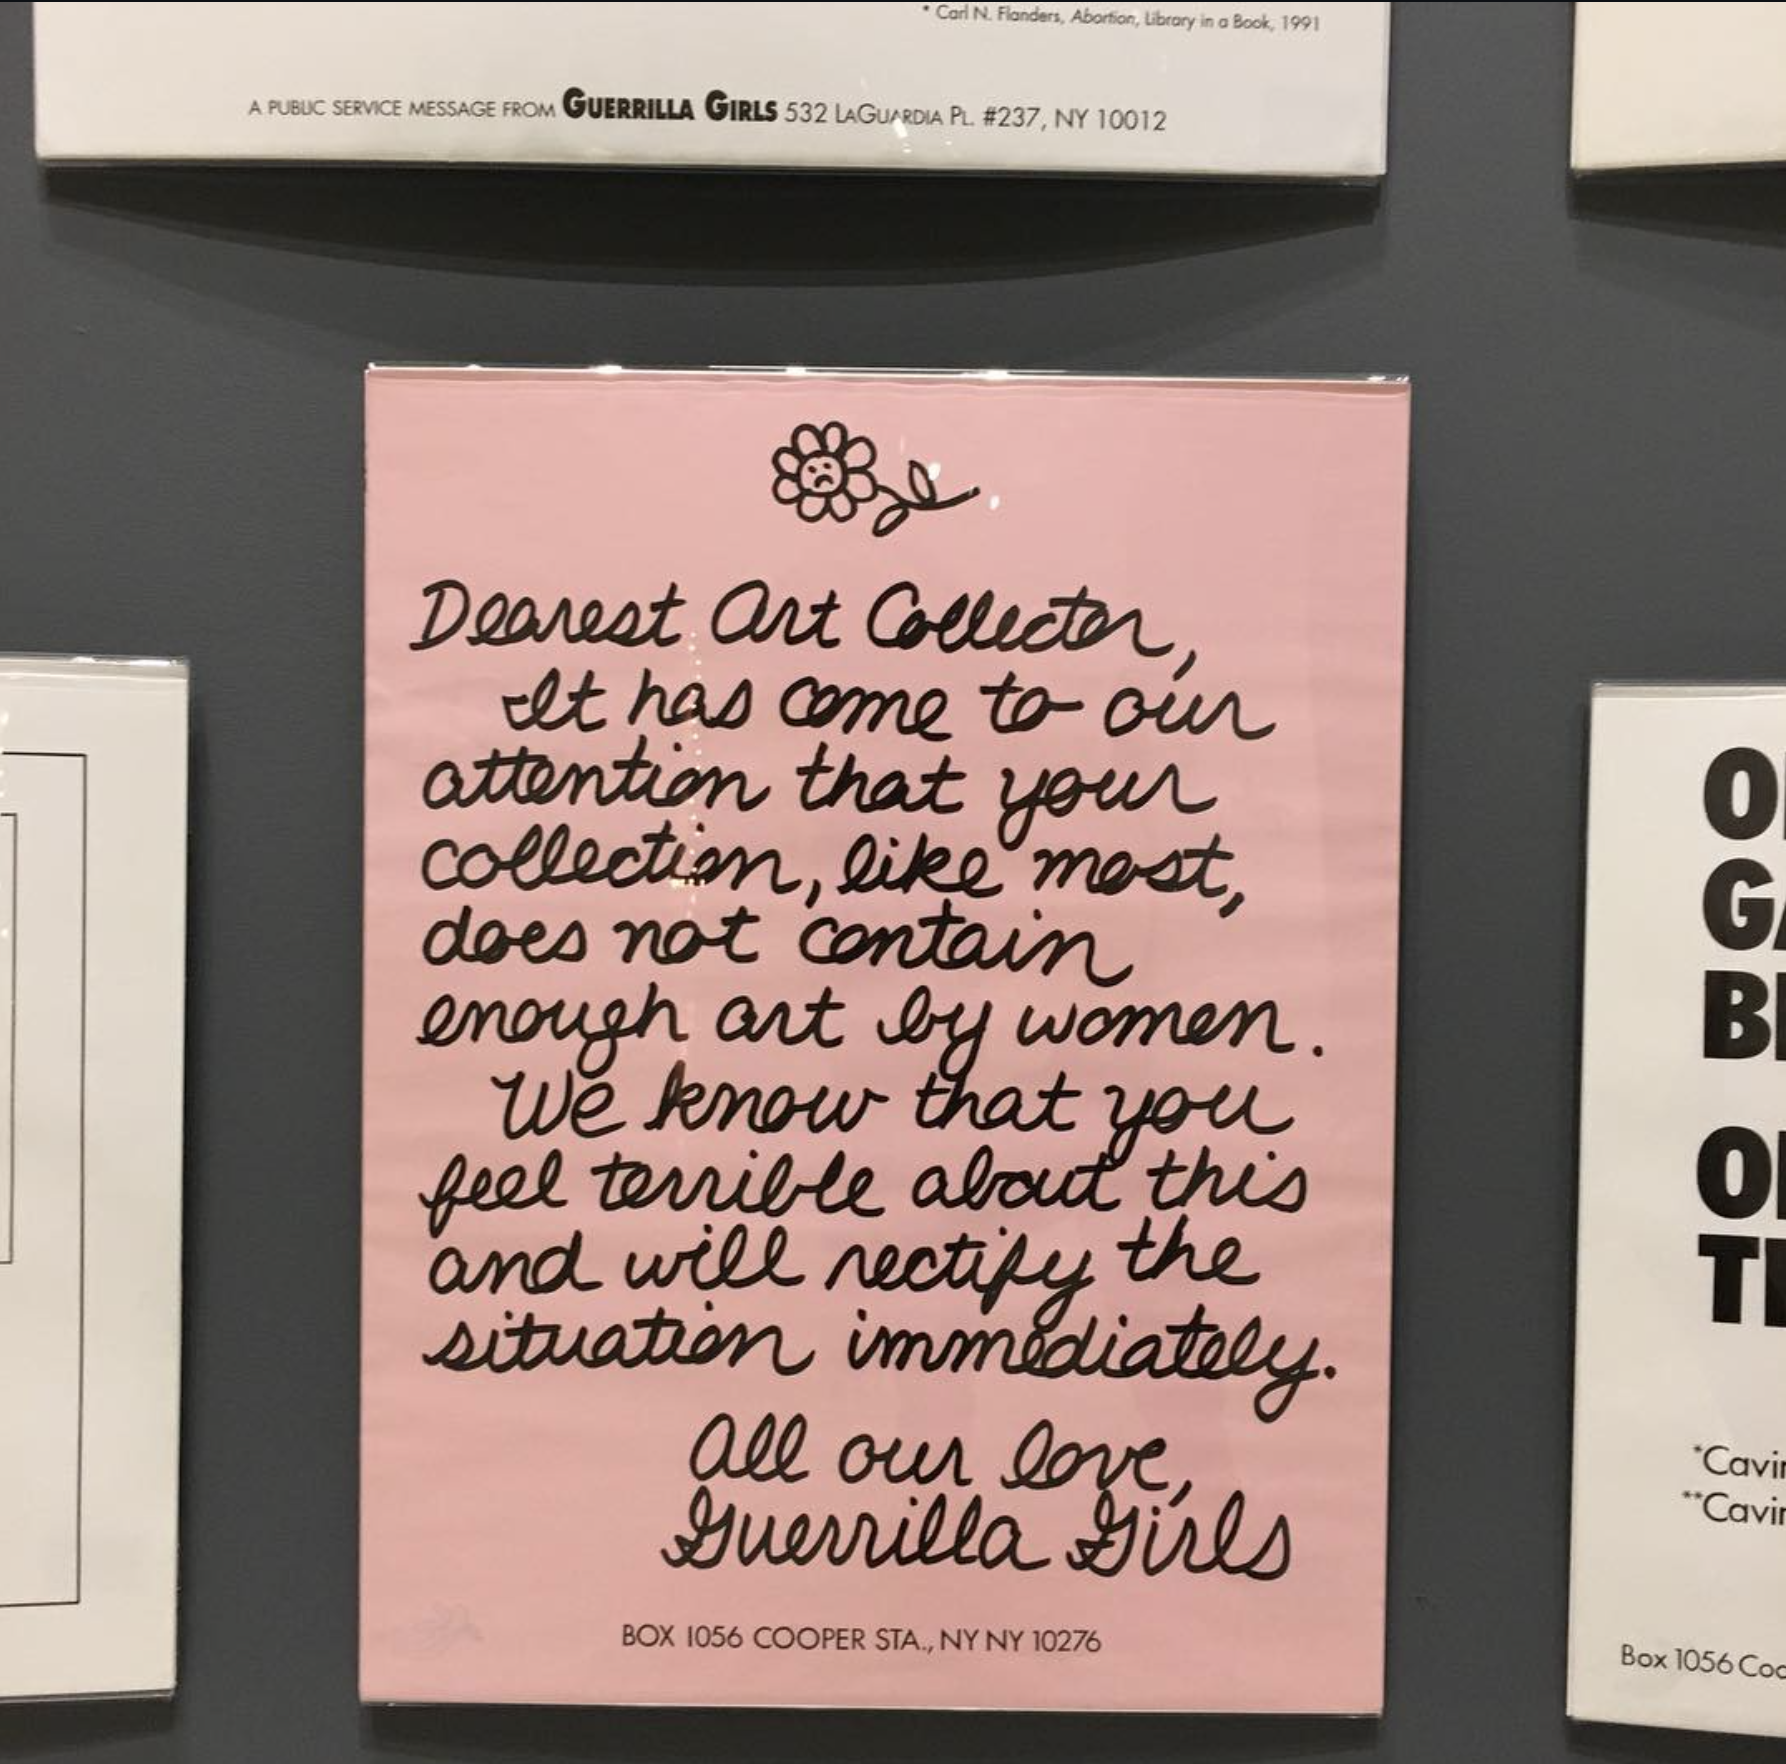 * Carl N. Flanders, Abortion, Library in a Book, 1991
A PUBLIC SERVICE MESSAGE FROM GUERRILLA GIRLS 532 LAGUARDIA PL. #237, NY 10012
Dearest Art Collector,
It has come to our
attention that your
collection, like most,
does not contain
enough art by women.
We know that you
feel terrible about this
and will rectify the
situation immediately.
All our love,
Guerrilla Girls
BOX 1056 COOPER STA., NY NY 10276
Box 1056